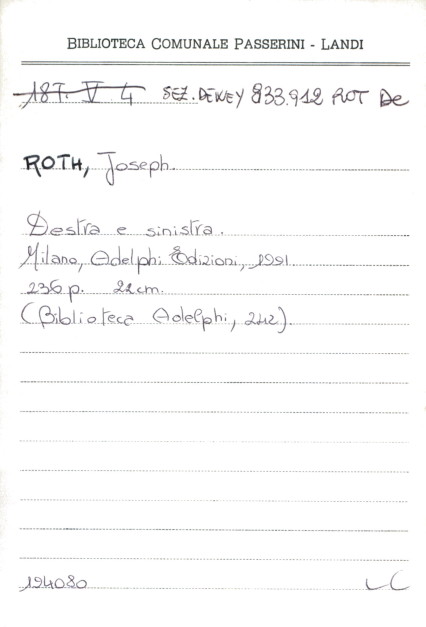 BIBLIOTECA COMUNALE PASSERINI - LANDI
18T. V 4 SEZ. DEWEY 833.912 ROT De
ROTH, Joseph.
Destra e sinistra.
Milano, Adelphi Edizioni, 1991
236 p. 22 cm.
(Biblioteca Adelphi, 242).
194080 LC